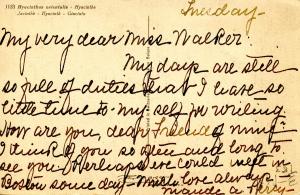 1125 Hyacinthus orientalis - Hyacinthe
Jacinthe - Hyacinth - Giacinto
Tuesday -
My very dear Miss Walker:
My days are still
so full of duties that I have so
little time to my self for writing
How are you, dear Friend of mine;
I think of you so often and long to
see you. Perhaps we could meet in
Boston some day - Much love always
Maude